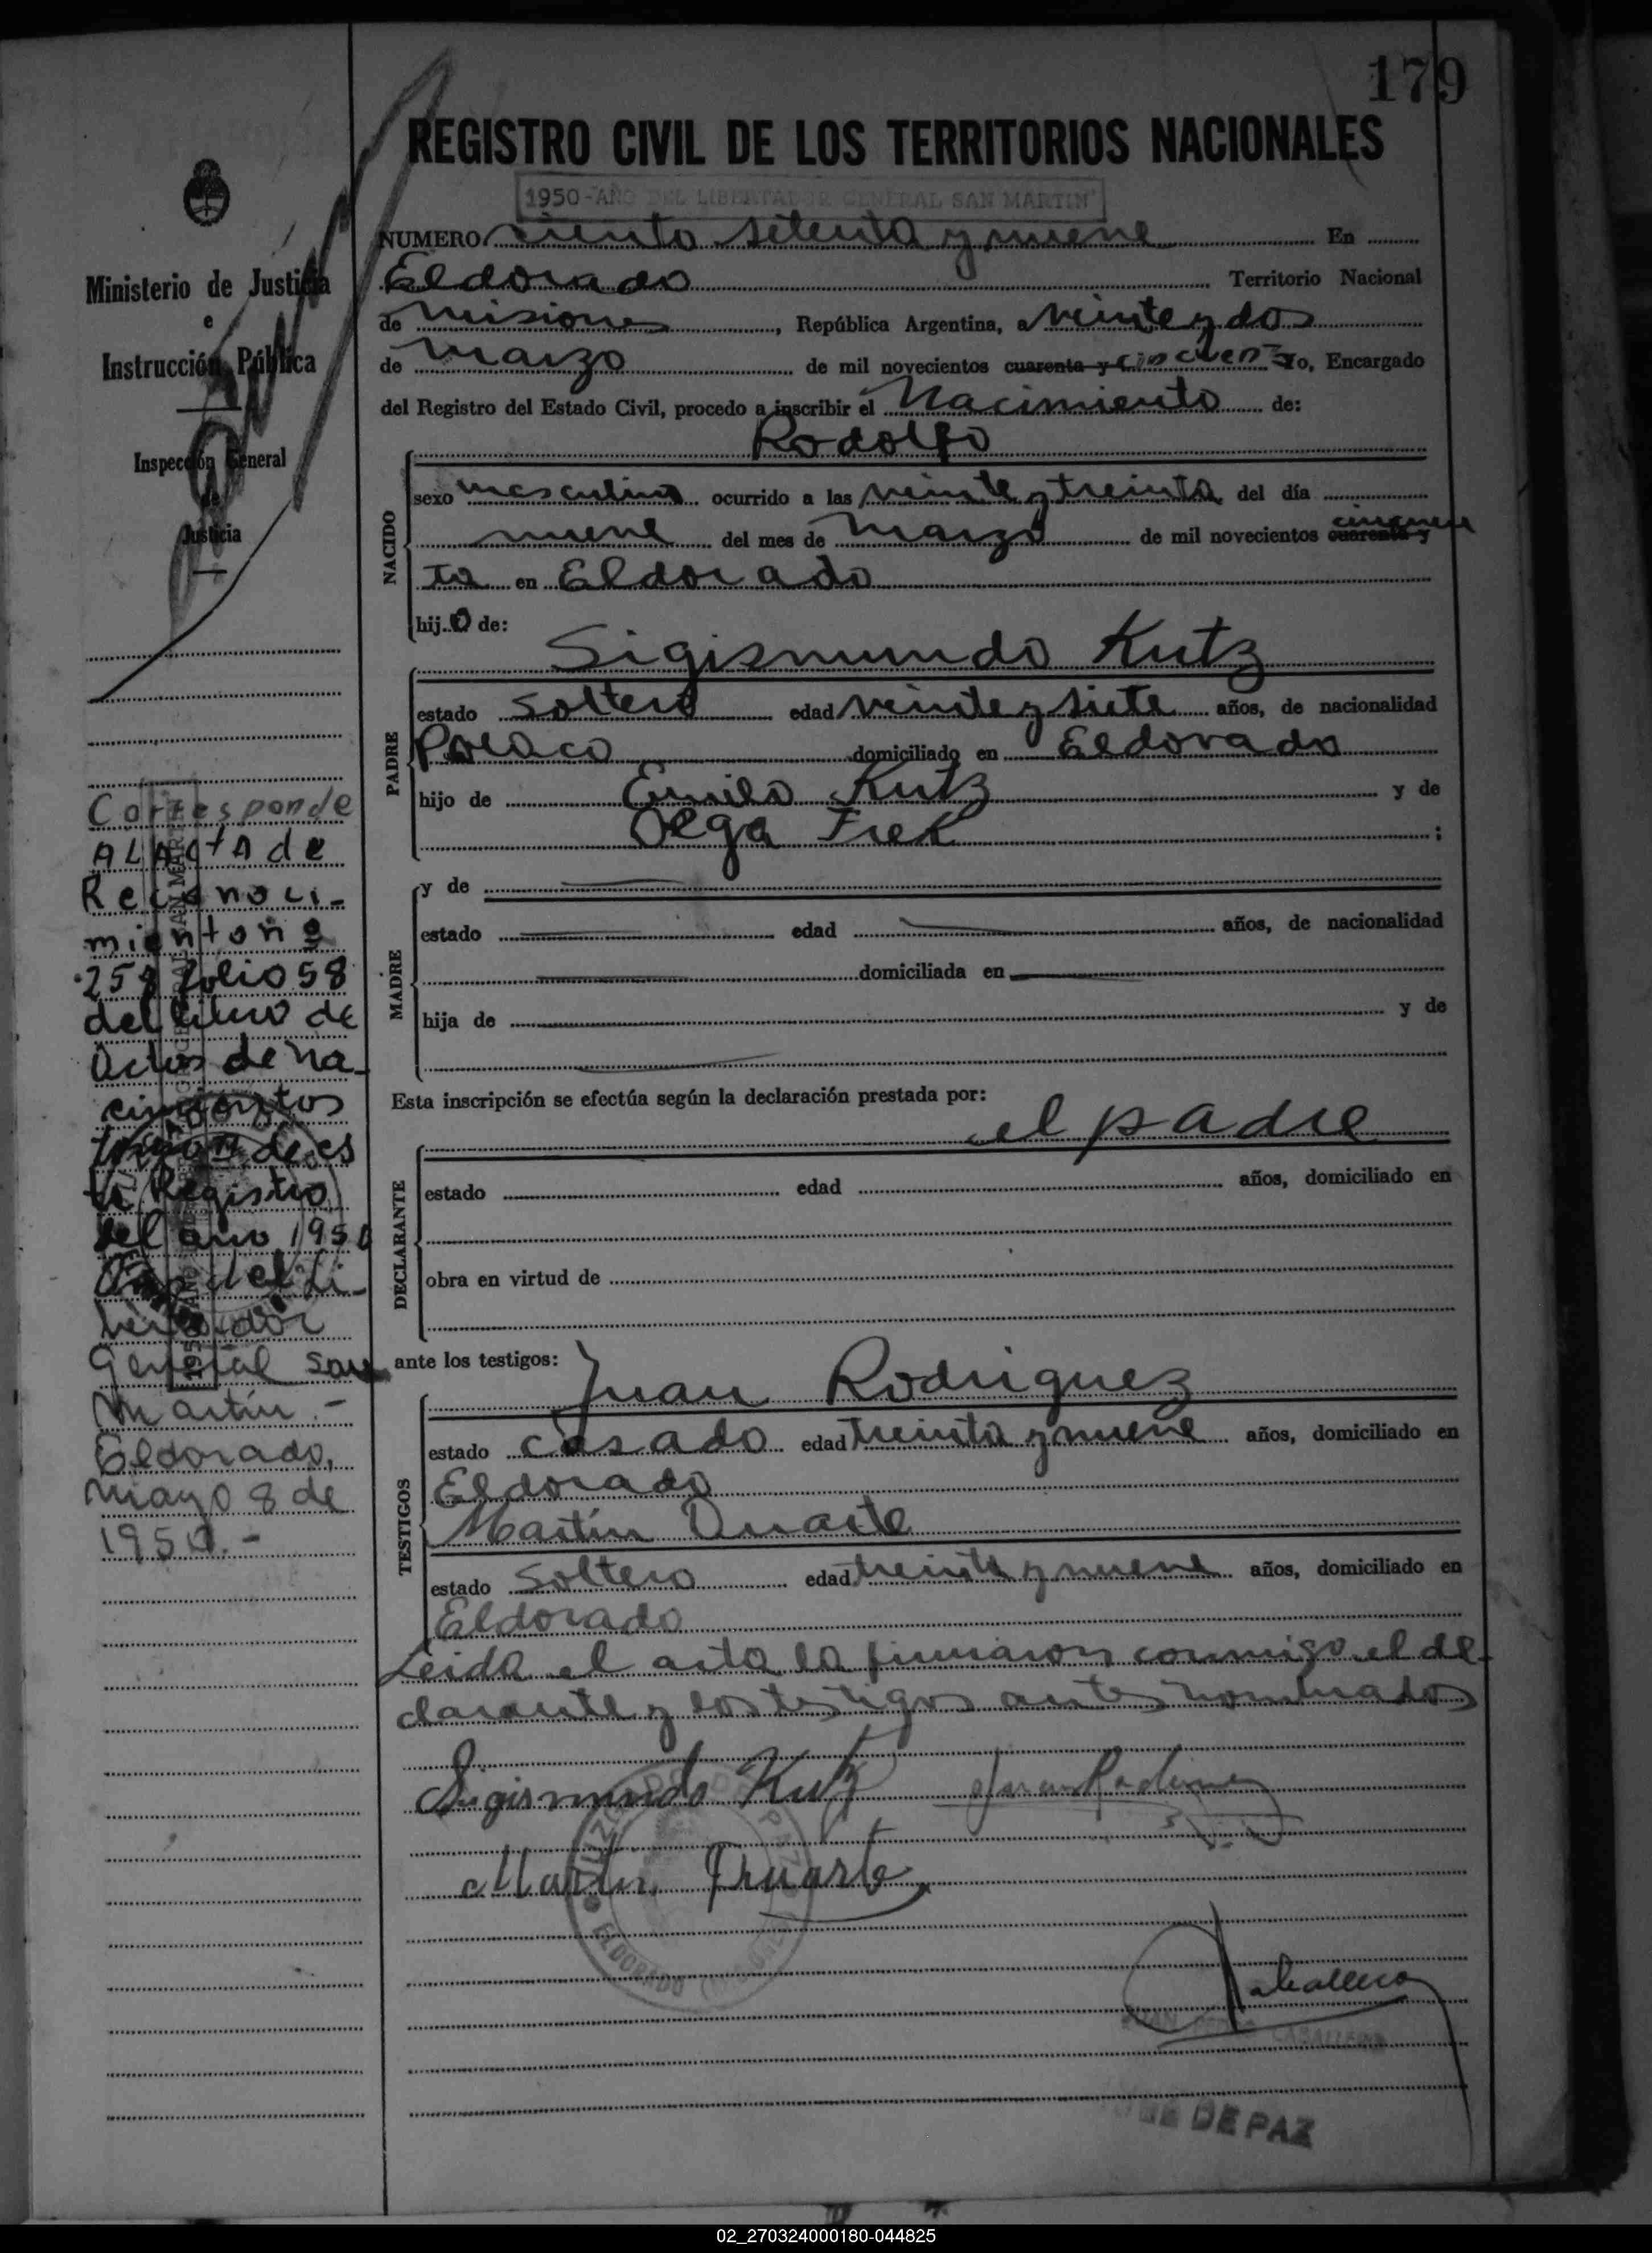 179
REGISTRO CIVIL DE LOS TERRITORIOS NACIONALES
1950-"AÑO DEL LIBERTADOR GENERAL SAN MARTIN"
NUMERO ciento setenta y nueve En
Eldorado Territorio Nacional
de Misiones, República Argentina, a veinte y dos
de Marzo de mil novecientos cuarenta y cincuenta Yo, Encargado
del Registro del Estado Civil, procedo a inscribir el Nacimiento de:
Rodolfo
NACIDO
sexo masculino ocurrido a las veinte y treinta del día
nueve del mes de Marzo de mil novecientos cuarenta y cincuen
ta en Eldorado
hijo de:
PADRE
Sigismundo Kutz
estado soltero edad veinte y siete años, de nacionalidad
Polaco domiciliado en Eldorado
hijo de Emilo Kutz y de
Olga Frek ;
MADRE
y de
estado edad años, de nacionalidad
domiciliada en
hija de y de
Esta inscripción se efectúa según la declaración prestada por:
el padre
DECLARANTE
estado edad años, domiciliado en
obra en virtud de
ante los testigos:
TESTIGOS
Juan Rodriguez
estado casado edad treinta y nueve años, domiciliado en
Eldorado
Martin Duarte
estado soltero edad treinta y nueve años, domiciliado en
Eldorado
Leida el acta la firmaron conmigo el de-
clarante y los testigos antes nombrados
Sigismundo Kutz Juan Rodriguez
Martin Duarte
ELDORADO
Caballero
JUAN PEDRO CABALLERO
JUEZ DE PAZ
Ministerio de Justicia
e
Instrucción Pública
Inspección General
de
Justicia
Corresponde
AL ActA de
Reconoci-
miento nº
259 folio 58
del libro de
Actos de na-
cimientos
de es
te Registro
del año 1950
Año del Li-
bertador
General San
Martin.-
Eldorado,
mayo 8 de
1950.-
02_270324000180-044825